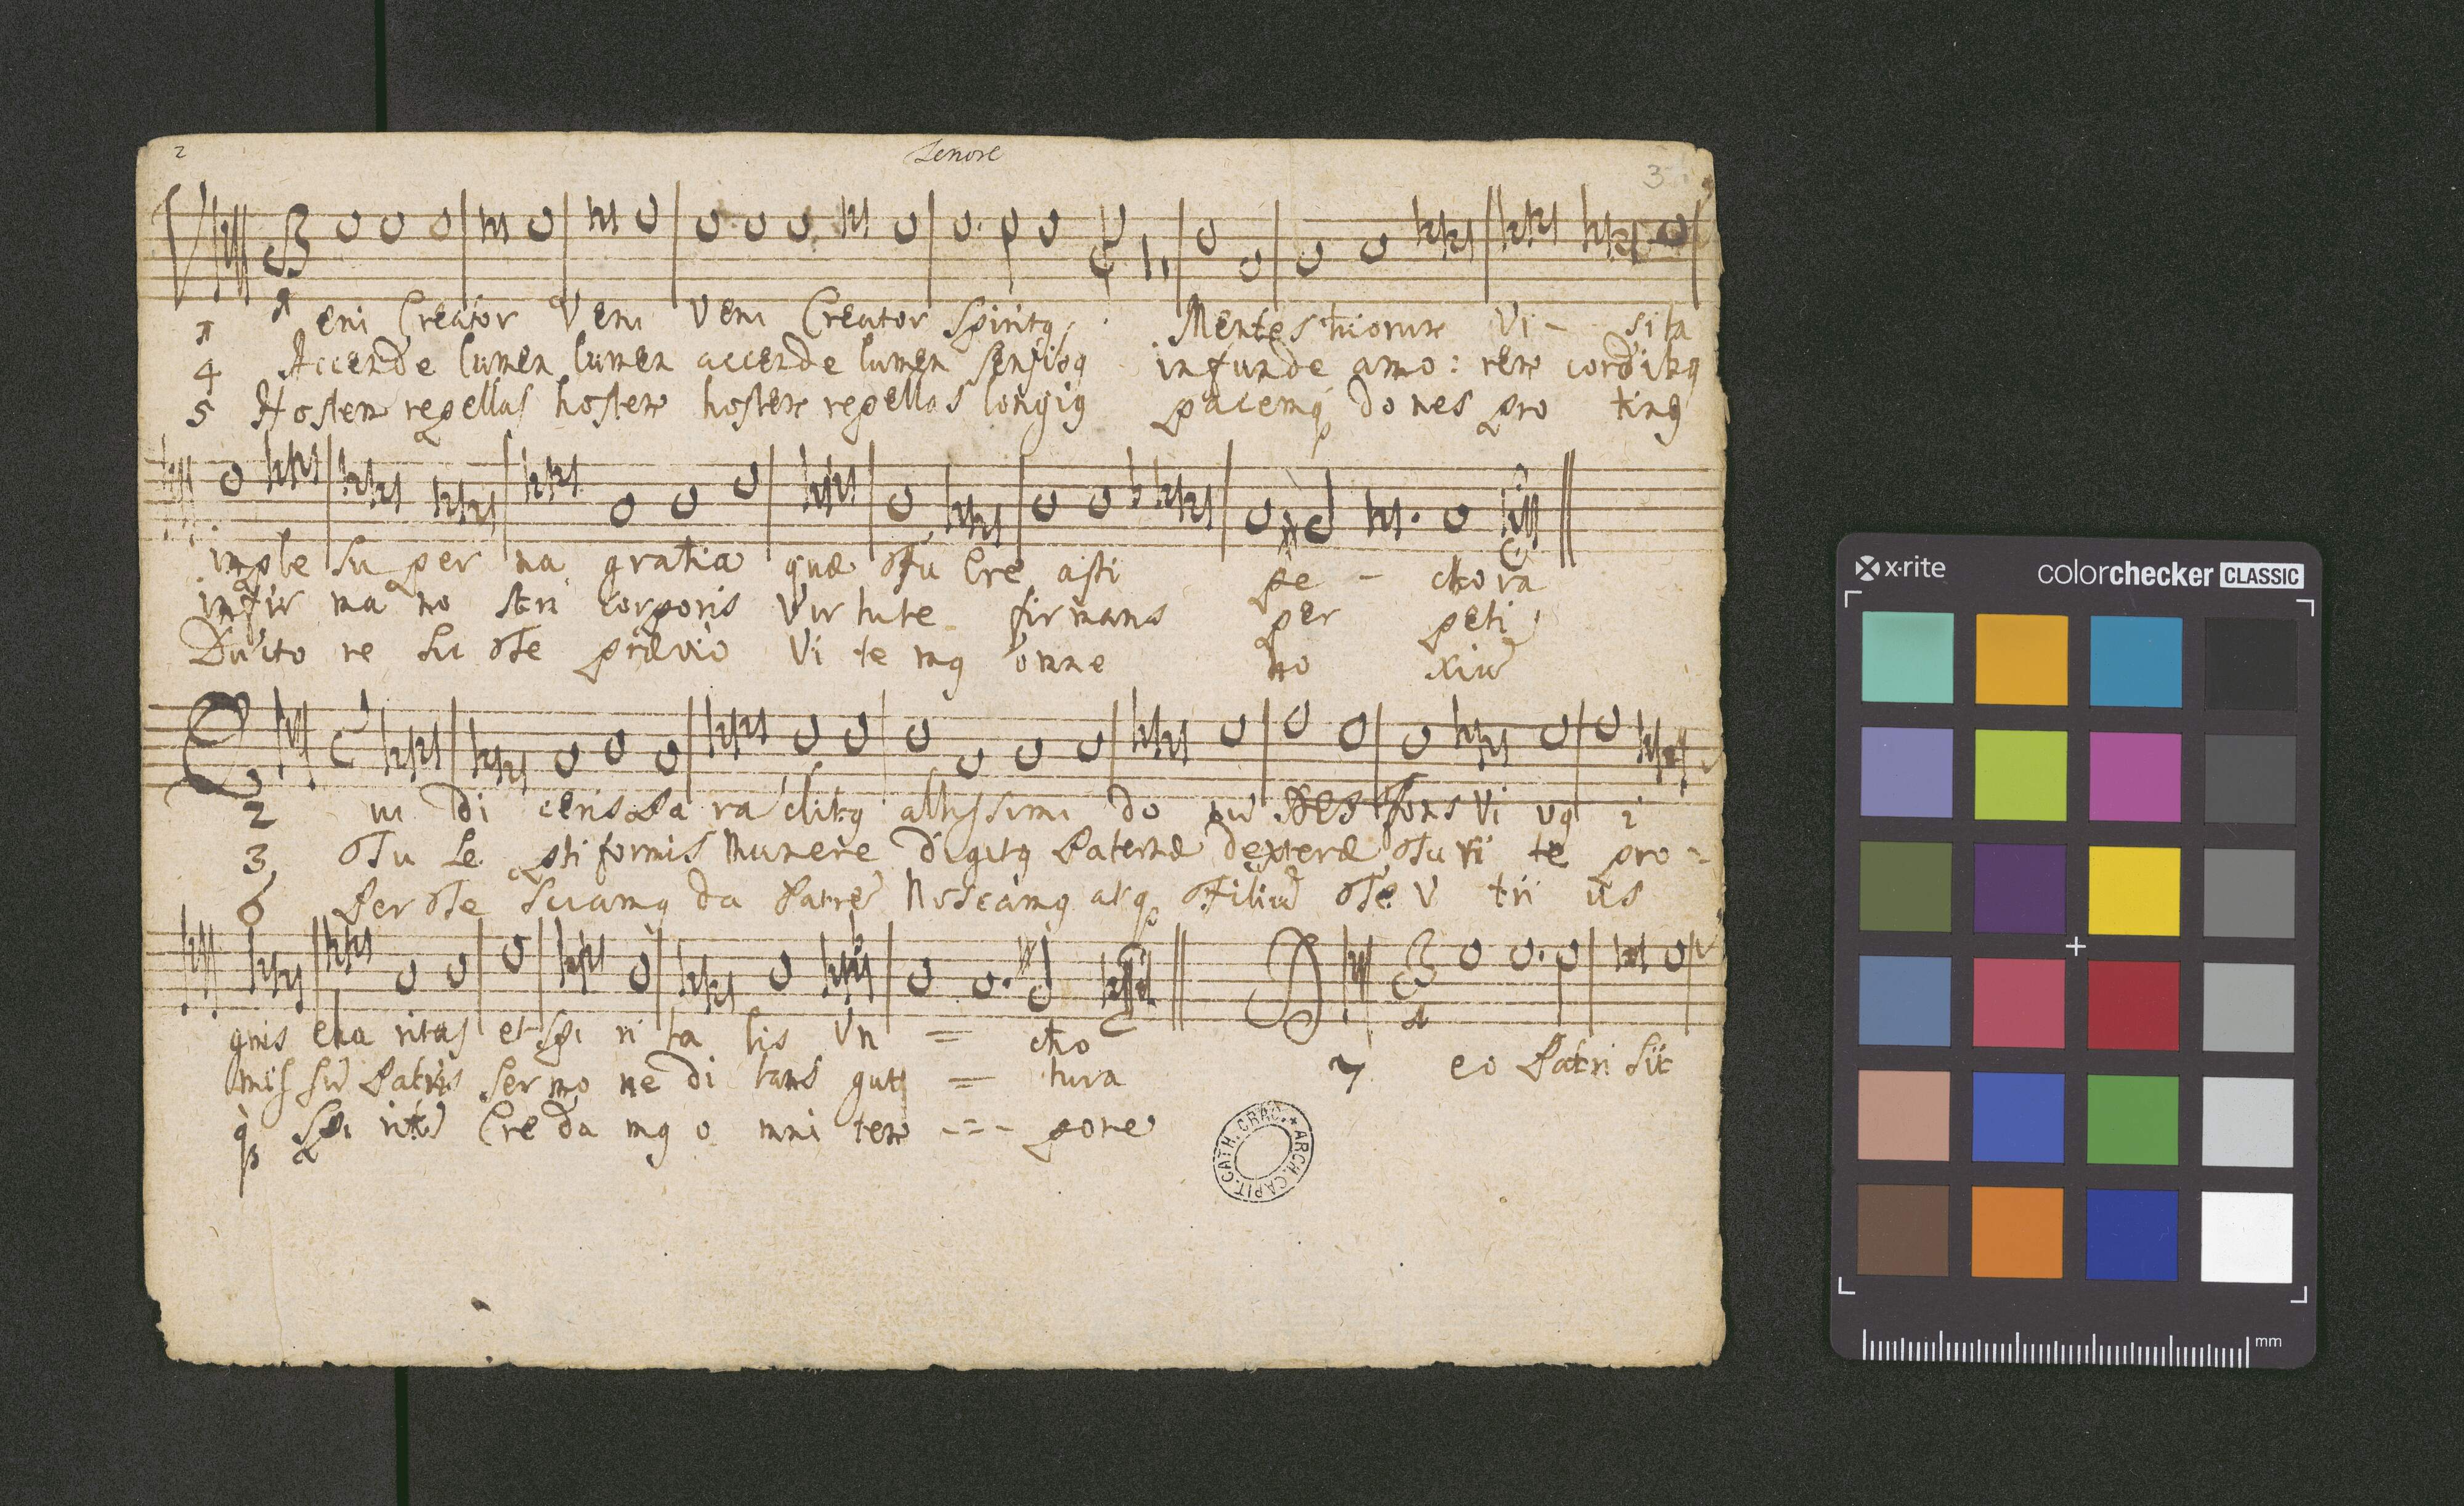 2
Tenore
3
1 Veni Creator Veni Veni Creator Spiritq Mentes tuorum Vi - sita
4 Accende lumen lumen accende lumen sensibq infunde amo: rem cordibq
5 Hostem repellas hostem hostem repellas longiq pacemq dones pro tinq
imple Su per na gratia quæ Tu Cre asti pe - ctora
infir ma no stri corporis Virtute firmans per peti
Ducto re Sic Te prævio Vi te mq omne no xiū
2 Qui di ceris Pa ra clitq altissimi do nū DEI Fons Vi vq i
3 Tu Se pti formis Munere digitq Paternæ dexteræ Tu ri te pro =
6 Per Te Sciamq da Patrē Noscamq atq Filiū Te V tri us
gnis cha ritas et Spi ri ta lis Vn = ctio
mis sū Patris Sermo ne di tans gutt = tura
q Spi ritū Cre da mq o mni tem - = - pore
7 Deo Patri Sit
ARCH. CAPIT. CATH. CRAC.
x·rite
colorchecker CLASSIC
mm